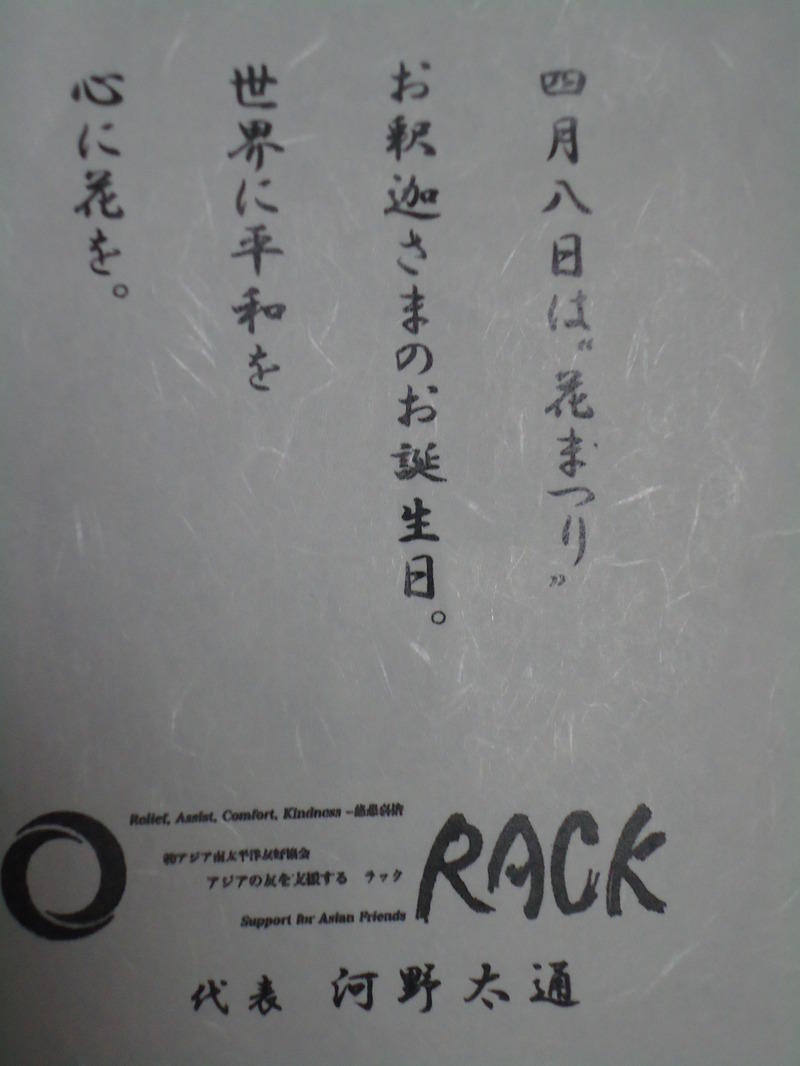 四月八日は“花まつり”
お釈迦さまのお誕生日。
世界に平和を
心に花を。
Relief, Assist, Comfort, Kindness −慈悲喜捨
㈶アジア南太平洋友好協会
アジアの友を支援する ラック
Support for Asian Friends
RACK
代表 河野太通